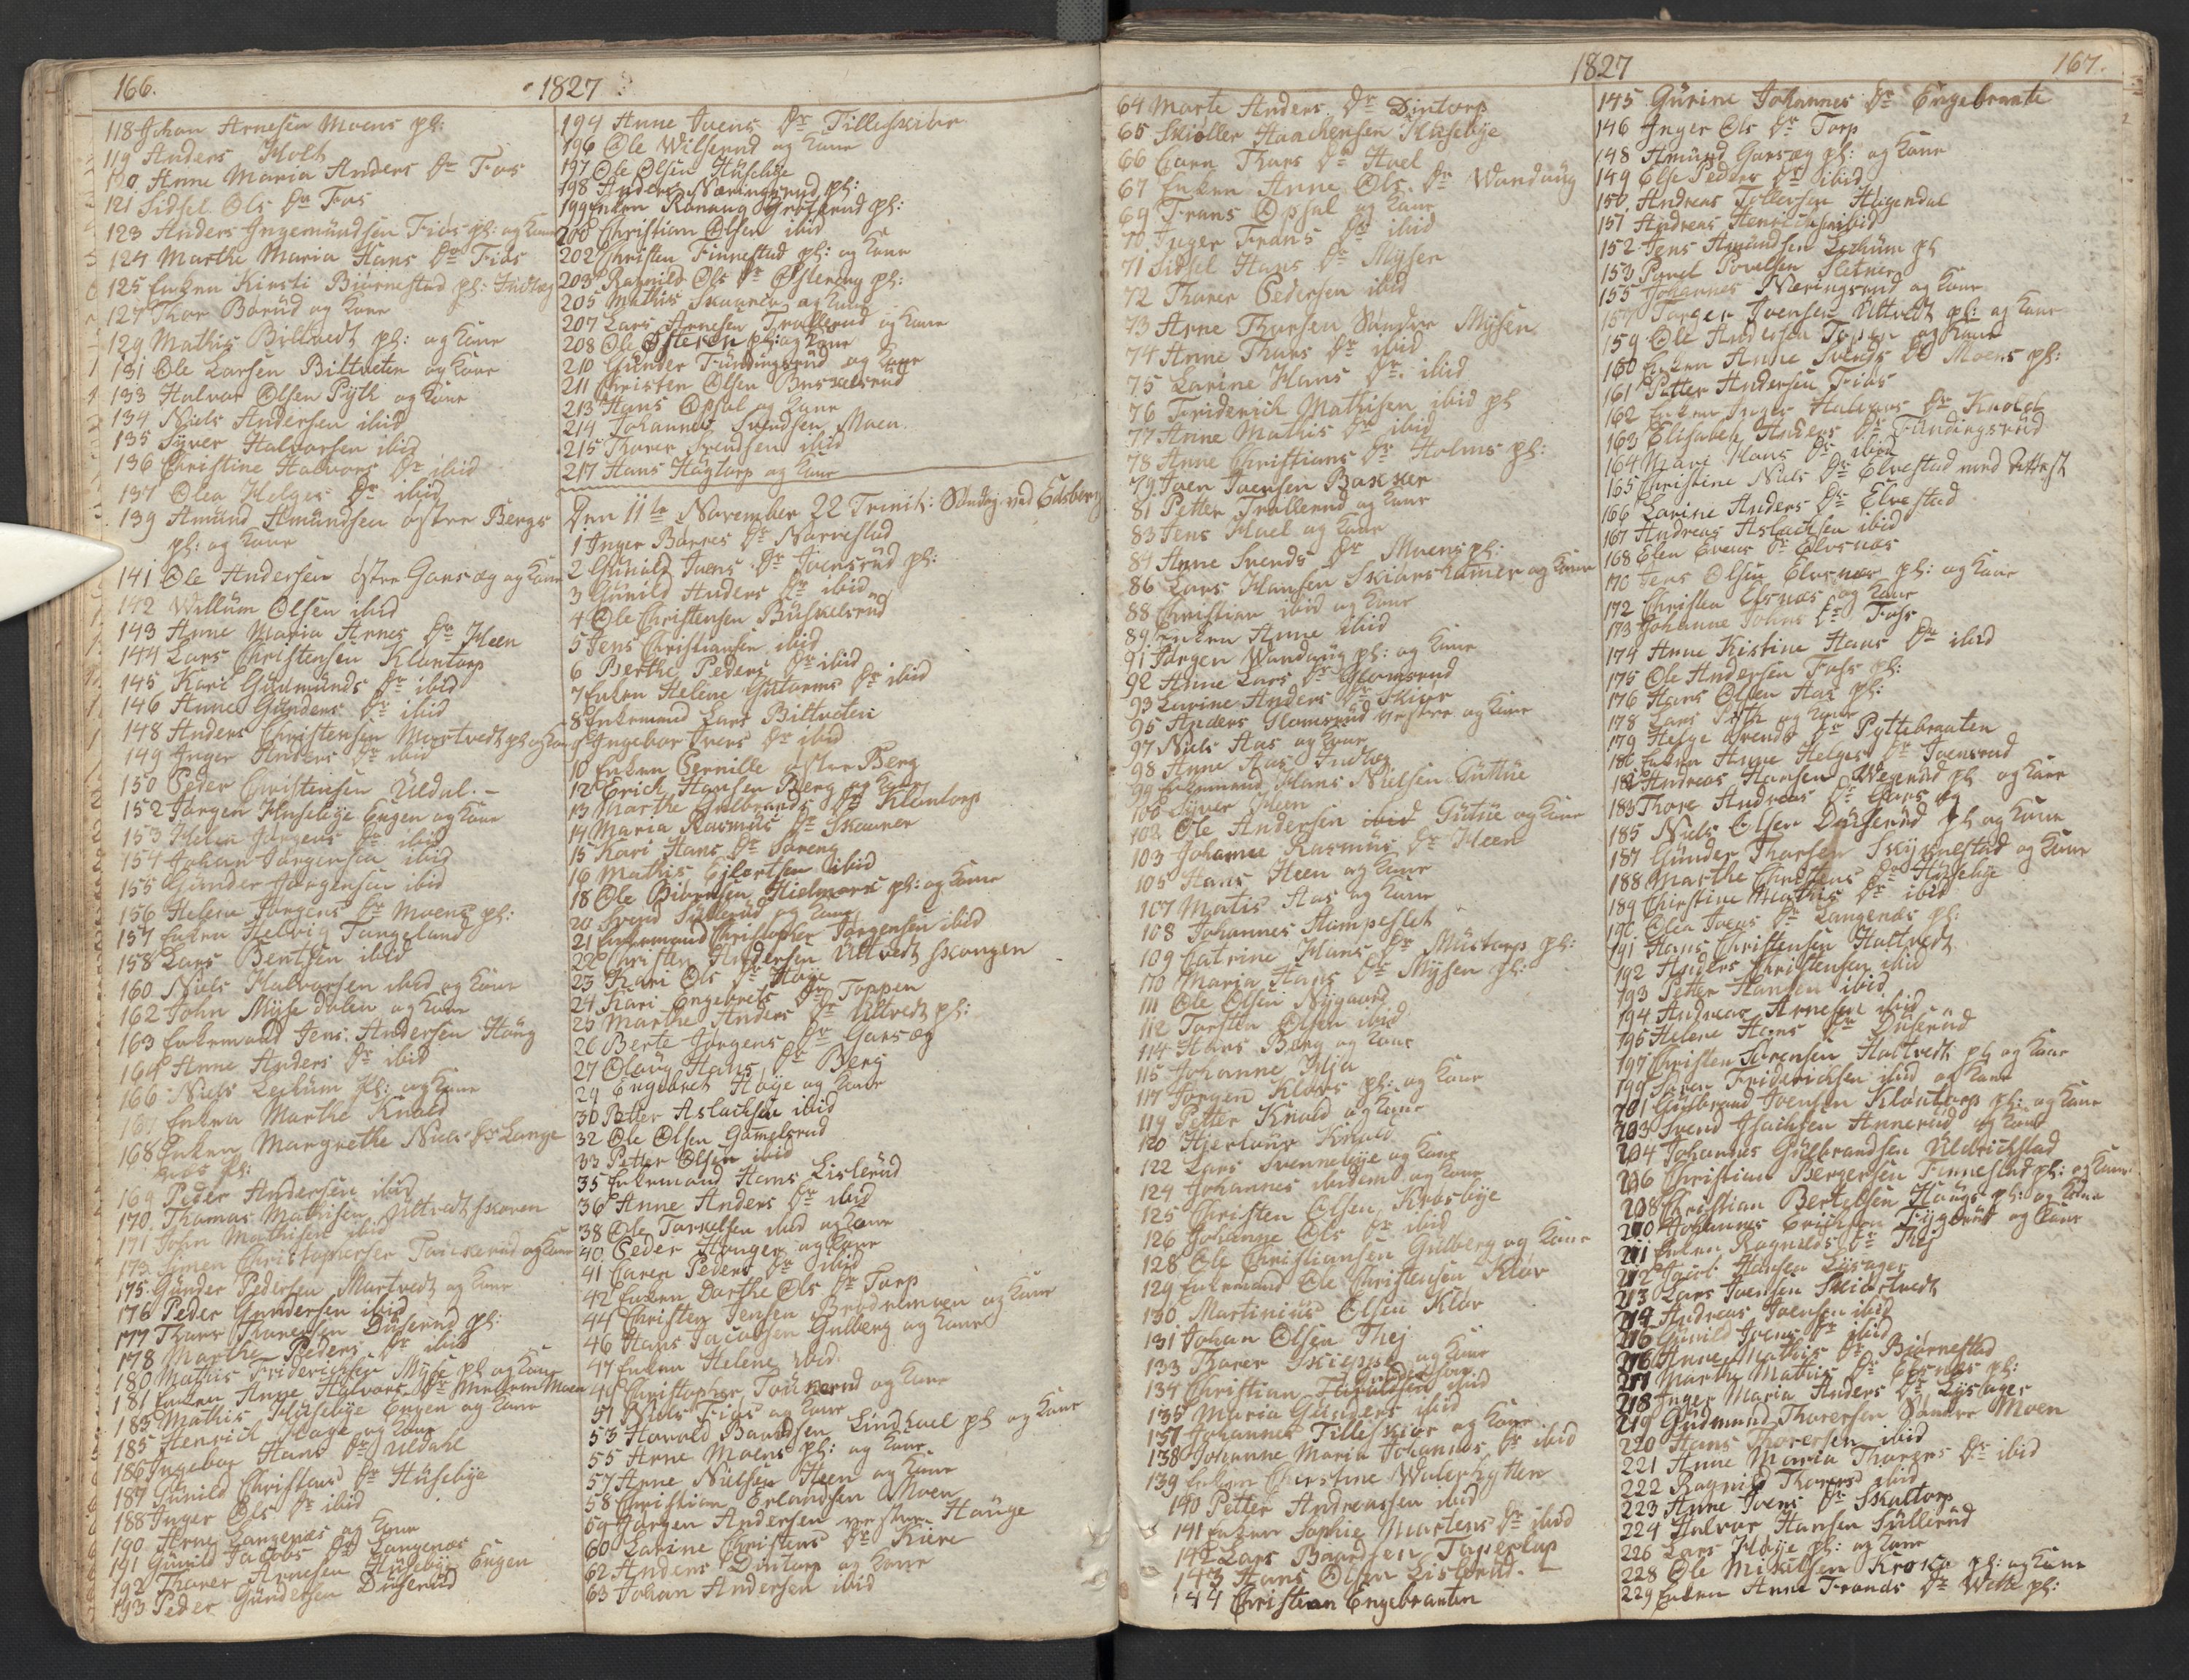 166.
1827
118 Johan Arnesen Moens pl:
119 Anders Holt
120 Anne Maria Anders Dr Fos
121 Sidsel Ols Dr Fos
123 Anders Ingemündsen Fiøs pl: og Kone
124 Marthe Maria Hans Dr Fiøs
125 Enken Kirsti Biørnestad pl: Indlæg
127 Thor Borüd og Kone
129 Mathis Biltvedt pl: og Kone
131 Ole Larsen Biltveten og Kone
133 Halvor Olsen Pÿth og Kone
134 Niels Andersen ibid
135 Sÿver Halvorsen ibid
136 Christine Halvors Dr ibid
137 Olea Helges Dr ibid
139 Amünd Amündsen østre Bergs
pl: og Kone
141 Ole Andersen østre Garseg og Kone
142 Willüm Olsen ibid
143 Anne Maria Arnes Dr Heen
144 Lars Christensen Klontorp
145 Kari Güdmunds Dr ibid
146 Anne Günders Dr ibid
148 Anders Christensen Martvedt pl og Kone
149 Inger Anders Dr ibid
150 Peder Christensen Üldal. -
152 Jørgen Huseby Engen og Kone
153 Helen Jørgens Dr ibid
154 Johan Jørgensen ibid
155 Günder Jørgensen ibid
156 Helene Jørgens Dr Moens pl:
157 Enken Helvig Tangeland
158 Lars Bentsen ibid
160 Niels Halvorsen ibid og Kone
162 John Mÿse dalen og Kone
163 Enkemand Jens Andersen Haüg
164 Anne Anders Dr ibid
166 Niels Leküm pl: og Kone
167 Enken Marthe Knold
168 Enken Margrethe Niels Dr Lange
næs pl:
169 Peder Andersen ibid
170 Thomas Mathisen Ultvedt skoven
171 John Mathisen ibid
173 Simen Christophersen Toükerud og Kone
175 Günder Pedersen Martvedt og Kone
176 Peder Gundersen ibid
177 Thore Thoresen Düserud pl:
178 Marthe Peders Dr ibid
180 Mathis Friderichsen Mÿse pl og Kone
181 Enken Anne Halvors Dr Moen
183 Mathis Hüsebÿe Engen og Kone
185 Henrich Hage og Kone
186 Ingebor Hans Dr Üldahl
187 Günild Christens Dr Hüsebÿe
188 Inger Ols Dr ibid
190 Arne Langenæs og Kone
191 Günild Jacobs Dr Langenæs
192 Thorer Arnesen Hüsebÿe Engen
193 Peder Gündersen Düserüd
194 Anne Joens Dr Tilleskiør
196 Ole Wilserud og Kone
197 Ole Olsen Hüsebÿe
198 Anders Næringsrud pl:
199 Enken Ronaug Grøtterud pl:
200 Christian Olsen ibid
202 Christen Finnestad pl: og Kone
203 Ragnild Ols Dr Østereng pl:
205 Mathis Skaaren og Kone
207 Lars Arnesen Trollerud og Kone
208 Ole Østeren pl: og Kone
210 Günder Fündingsrüd og Kone
211 Christen Olsen Buskelsrüd
213 Hans Opsal og Kone
214 Johannes Svendsen Moen
215 Thorer Svendsen ibid
217 Hans Haÿtorp og Kone
Den 11te November 22 Trinit: Søndag ved Edsberg
1 Inger Børres Dr Narvestad
2 Günild Joens Dr Joensrüd pl:
3 Günild Anders Dr ibid
4 Ole Christensen Büskelsrüd
5 Jens Christiansen ibid
6 Berthe Peders Dr ibid
7 Enken Helene Gutorms Dr ibid
8 Enkemand Lars Biltveten
9 Ingebor Ivers Dr ibid
10 Enken Pernille østre Berg
12 Erich Hansen Berg og Kone
13 Marthe Gulbrands Dr Klontorp
14 Maria Rasmüs Dr Skaaren
15 Kari Hans Dr Søreng
16 Mathis Ejlertsen ibid
18 Ole Biørnsen Hielmark pl: og Kone
20 Svend Süllerüd og Kone
21 Enkemand Christopher Jørgensen ibid
22 Christen Andersen Ültvedt skougen
23 Kari Ols Dr Høÿe
24 Kari Engebrets Dr Toppen
25 Marthe Anders Dr Ültvedt pl:
26 Berte Jørgens Dr Garseg
27 Olaüg Hans Dr Berg
29 Engebret Høÿe og Kone
30 Petter Aslachsen ibid
32 Ole Olsen Gamelsrud
33 Petter Olsen ibid
35 Enkemand Hans Lislerüd
36 Anne Anders Dr ibid
38 Ole Torkelsen ibid og Kone
40 Peder Houger og Kone
41 Caren Peders Dr ibid
42 Enken Dorthe Ols Dr Torp
44 Christen Jensen Brødremoen og Kone
46 Hans Jacobsen Gulberg og Kone
47 Enken Helene ibid
49 Christopher Toükerud og Kone
51 Niels Fiøs og Kone
53 Harald Baardsen Lindhoel pl og Kone
55 Arne Moens pl: og Kone
57 Arne Nielsen Heen og Kone
58 Christian Erlandsen Moen
59 Jørgen Andersen vestre Haüge
60 Larine Christens Dr Kiere
62 Anders Dintorp og Kone
63 Johan Andersen ibid
1827
167.
64 Marte Anders Dr Dintorp
65 Skiøller Haachensen Hüsebÿe
66 Caren Thors Dr Hoel
67 Enken Anne Ols Dr Wandüg
69 Frans Opsal og Kone
70 Inger Frans Dr ibid
71 Sidsel Hans Dr Mÿsen
72 Thorer Pedersen ibid
73 Arne Thorsen Søndre Mÿsen
74 Anne Thors Dr ibid
75 Larine Hans Dr ibid
76 Friderich Mathisen ibid pl
77 Anne Mathis Dr ibid
78 Anne Christians Dr Holms pl:
79 Joen Joensen Bakker
81 Petter Trollerud og Kone
83 Jens Hoel og Kone
84 Anne Svends Dr Moens pl:
86 Lars Hansen Skiørshamer og Kone
88 Christian ibid og Kone
89 Enken Anne ibid
91 Jørgen Wandüg pl: og Kone
92 Anne Lars Dr Glomsrud
93 Larine Anders Dr Skiør
95 Anders Glomsrüd vestre og Kone
97 Niels Aas og Kone
98 Anne Aas Indlæg
99 Enkemand Hans Nielsen Güttüe
100 Sÿver Heen
102 Ole Andersen ibid Gütüe og Kone
103 Johanne Rasmüs Dr Heen
105 Hans Heen og Kone
107 Matis Aas og Kone
108 Johannes Humpeslet
109 Catrine Hans Dr Müstorp pl:
110 Maria Hans Dr Mÿsen pl:
111 Ole Olsen Nÿgaard
112 Torsten Olsen ibid
114 Hans Berg og Kone
115 Johanne Mia
117 Jørgen Kloves pl: og Kone
119 Petter Knold og Kone
120 Hierlaug Knold
122 Lars Svennebÿe og Kone
124 Johannes ibidem og Kone
125 Christen Olsen Krosbÿe
126 Johanne Ols Dr ibid
128 Ole Christiansen Gülberg og Kone
129 Enkemand Ole Christensen Kløv
130 Martinius Olsen Kløv
131 Johan Olsen Thej
133 Thorer og Kone
134 Christian ibid
135 Maria Günders ibid
137 Johannes Tilleskiør og Kone
138 Johanne Maria Johannes Dr ibid
139 Enken Christine Walerhytten
140 Petter Andreassen ibid
141 Enken Sophie Martens Dr ibid
142 Lars Baardsen Toperlüp
143 Hans Olsen Lislerüd. -
144 Christian Engebraaten
145 Gürine Johannes Dr Engebraate
146 Inger Ols Dr Torp
148 Amünd Garseg pl: og Kone
149 Else Peders Dr ibid
150 Andreas Tollersen Haÿendal
151 Andreas Henrichsen ibid
152 Jens Amündsen Leküm pl
153 Povel Povelsen Sletner
155 Johannes Næringsrud og Kone
157 Torger Joensen Ültvedt pl: og Kone
159 Ole Andersen Topen og Kone
160 Enken Anne Svends Dr Moens pl:
161 Petter Andersen Fiøs
162 Enken Inger Halvors Dr Knold
163 Elisabeth Anders Dr Fündingsrüd
164 Mari Hans Dr ibid
165 Christine Niels Dr Elvestad med Attest
166 Larine Anders Dr Elvestad
167 Andreas Aslachsen ibid
168 Elen Evens Dr Elvsnæs
170 Jens Olsen Elvsnæs pl: og Kone
172 Christen Elvsnæs og Kone
173 Johanne Johns Dr Foss
174 Anne Kistine Hans Dr ibid
175 Ole Andersen Foss pl:
176 Hans Olsen Aas pl:
178 Lars Pÿth og Kone
179 Helge Svends Dr Pyttebraaten
180 Enken Anne Helges Dr Joensrud
182 Andreas Hansen pl og Kone
183 Thore Andreas Dr Garseg
185 Niels Olsen Düserüd pl og Kone
187 Günder Thorsen og Kone
188 Marthe Christens Dr Hüsebÿe
189 Christine Mathis Dr ibid
190 Olea Joens Dr Langenæs pl:
191 Hans Christensen Holtvedt
192 Anders Christensen ibid
193 Petter Hansen ibid
194 Andreas Arnesen ibid
195 Helene Hans Dr Düserüd
197 Christen Sørensen Holtvedt pl og Kone
199 Søren Friderichsen ibid og Kone
201 Gulbrand Joensen Klontorp pl: og Kone
203 Svend Isachsen Annerüd og Kone
204 Johannes Gülbrandsen Üldrichstad
206 Christian Bergersen Finnestad pl: og Kone
208 Christian Bertelsen Haügs pl: og Kone
210 Johannes Erichsen og Kone
211 Enken Ragnilds Dr Thej
212 Jacob Hansen Lÿsager
213 Lars Joensen Skiørtvedt
214 Andreas Joensen ibid
215 Günild Joens Dr ibid
216 Anne Mathis Dr Biørnestad
217 Marthe Mathis Dr Elvsnæs pl:
218 Inger Maria Anders Dr Lÿsager
219 Güdmund Thorersen Søndre Moen
220 Hans Thorersen ibid
221 Anne Maria Thorers Dr ibid
222 Ragnild Thorers ibid
223 Anne Joens Dr Skaltorp
224 Halvor Hansen Süllerüd
226 Lars Høÿe pl: og Kone
228 Ole Mikelsen Kroka pl: og Kone
229 Enken Anne Frands Dr pl: